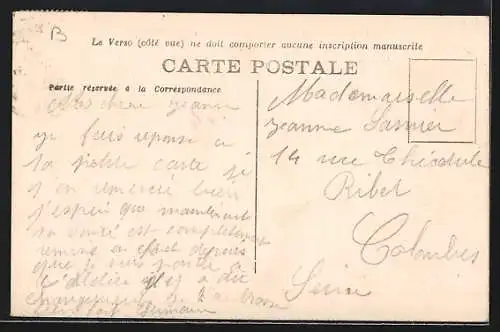 B
Le Verso (côté vue) ne doit comporter aucune inscription manuscrite
CARTE POSTALE
Partie réservée à la Correspondance
Ma chere Jeanne
je fais reponse a
ta petite carte je
t'en remercie bien
j'espère que maintenant
ta santé est completement
remise
que je suis
il y a du
changement
Germain
Mademoiselle
Jeanne
14 rue Théodule
Ribot
Colombes
Seine